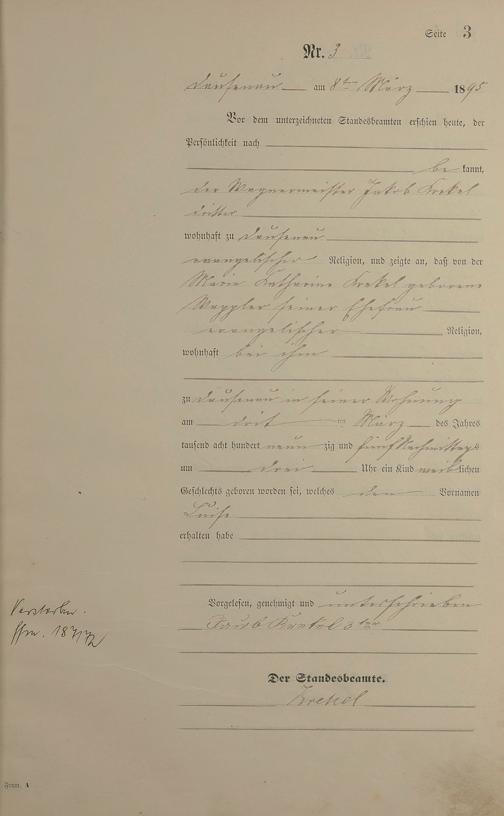 Seite 3
Nr. 3
Dausenau am 8ten März 1895
Vor dem unterzeichneten Standesbeamten erschien heute, der
Persönlichkeit nach
be kannt,
der Wagnermeister Jakob Krekel
dritter
wohnhaft zu Dausenau
evangelischer Religion, und zeigte an, daß von der
Maria Katharine Krekel geborene
Wappler seiner Ehefrau
evangelischer Religion,
wohnhaft bei ihm
zu Dausenau in seiner Wohnung
am März des Jahres
tausend acht hundert neun zig und fünf Nachmittags
um drei Uhr ein Kind weiblichen
Geschlechts geboren worden sei, welches den Vornamen
Luise
erhalten habe
Vorgelesen, genehmigt und unterschrieben
Jacob Krekel 3ter
Verstorben.
Der Standesbeamte.
Krekel
Form. A